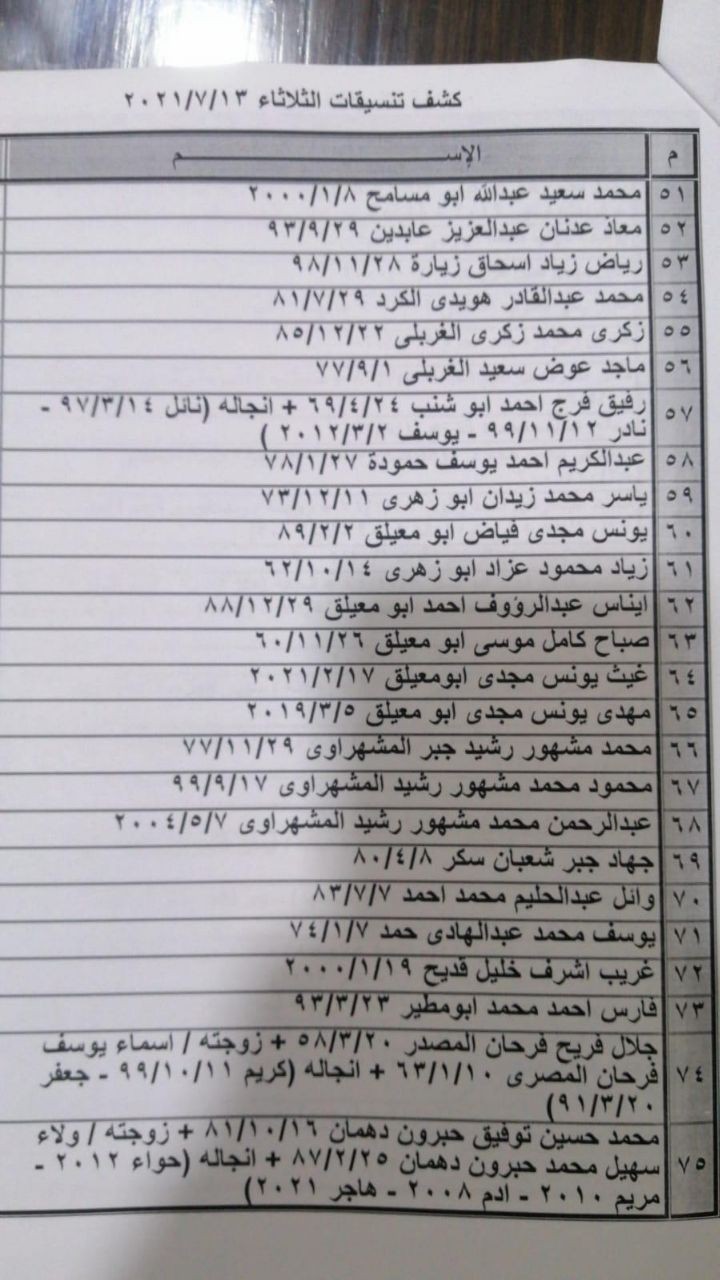 كشف تنسيقات الثلاثاء ٢٠٢١/٧/١٣
م الإســـــــــــــــــــــــم
٥١ محمد سعيد عبدالله ابو مسامح ٢٠٠٠/١/٨
٥٢ معاذ عدنان عبدالعزيز عابدين ٩٣/٩/٢٩
٥٣ رياض زياد اسحاق زيارة ٩٨/١١/٢٨
٥٤ محمد عبدالقادر هويدى الكرد ٨١/٧/٢٩
٥٥ زكرى محمد زكرى الغربلى ٨٥/١٢/٢٢
٥٦ ماجد عوض سعيد الغربلى ٧٧/٩/١
٥٧ رفيق فرج احمد ابو شنب ٦٩/٤/٢٤ + انجاله (نائل ٩٧/٣/١٤ -
نادر ٩٩/١١/١٢ - يوسف ٢٠١٢/٣/٢ )
٥٨ عبدالكريم احمد يوسف حمودة ٧٨/١/٢٧
٥٩ ياسر محمد زيدان ابو زهرى ٧٣/١٢/١١
٦٠ يونس مجدى فياض ابو معيلق ٨٩/٢/٢
٦١ زياد محمود عزاد ابو زهرى ٦٢/١٠/١٤
٦٢ ايناس عبدالرؤوف احمد ابو معيلق ٨٨/١٢/٢٩
٦٣ صباح كامل موسى ابو معيلق ٦٠/١١/٢٦
٦٤ غيث يونس مجدى ابومعيلق ٢٠٢١/٢/١٧
٦٥ مهدى يونس مجدى ابو معيلق ٢٠١٩/٣/٥
٦٦ محمد مشهور رشيد جبر المشهراوى ٧٧/١١/٢٩
٦٧ محمود محمد مشهور رشيد المشهراوى ٩٩/٩/١٧
٦٨ عبدالرحمن محمد مشهور رشيد المشهراوى ٢٠٠٤/٥/٧
٦٩ جهاد جبر شعبان سكر ٨٠/٤/٨
٧٠ وائل عبدالحليم محمد احمد ٨٣/٧/٧
٧١ يوسف محمد عبدالهادى حمد ٧٤/١/٧
٧٢ غريب اشرف خليل قديح ٢٠٠٠/١/١٩
٧٣ فارس احمد محمد ابومطير ٩٣/٣/٢٣
جلال فريح فرحان المصدر ٥٨/٣/٢٠ + زوجته / اسماء يوسف
٧٤ فرحان المصرى ٦٣/١/١٠ + انجاله (كريم ٩٩/١٠/١١ - جعفر
٩١/٣/٢٠)
محمد حسين توفيق حبرون دهمان ٨١/١٠/١٦ + زوجته / ولاء
٧٥ سهيل محمد حبرون دهمان ٨٧/٢/٢٥ + انجاله (حواء ٢٠١٢ -
مريم ٢٠١٠ - ادم ٢٠٠٨ - هاجر ٢٠٢١)